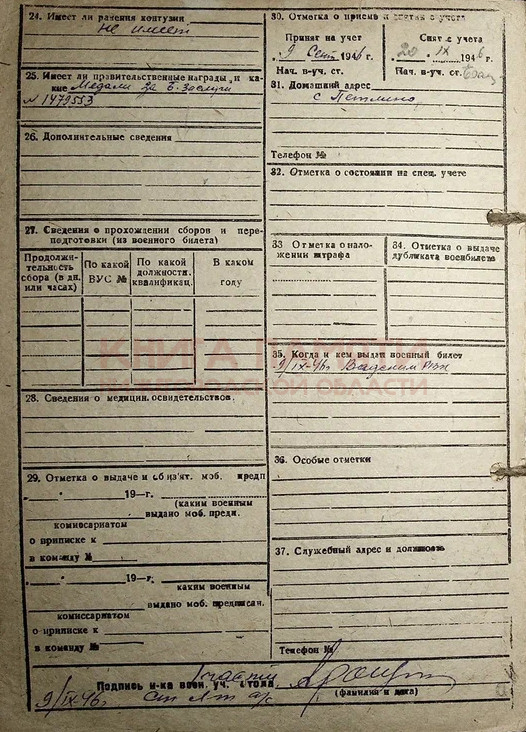 24. Имеет ли ранения контузии
не имеет
25. Имеет ли правительственные награды, и ка-
кие Медали за б. заслуги
№ 1479553
26. Дополнительные сведения
27. Сведения о прохождении сборов и пере-
подготовки (из военного билета)
Продолжи-
тельность
сбора (в дн.
или часах)
По какой
ВУС №
По какой
должности.
квалификац.
В каком
году
28. Сведения о медицин. освидетельствов.
29. Отметка о выдаче и об'ят. моб. предп
19—г.
(каким военным
выдано моб. предп.
комиссариатом
о приписке к
в команду №
19—г.
каким военным
выдано моб. предписан.
комиссариатом
о приписке к
в команду №
30. Отметка о приеме и снятии с учета
Принят на учет
9 Сент 1946 г.
Нач. в-уч. ст.
Снят с учета
20 IX 1946 г.
Нач. в-уч. ст.
31. Домашний адрес
с
Телефон №
32. Отметка о состоянии на спец. учете
33 Отметка о нало-
жении штрафа
34. Отметка о выдаче
дубликата военбилета
35. Когда и кем выдан военный билет
9/IX-46г
36. Особые отметки
37. Служебный адрес и должность
Телефон №
Подпись н-ка воен. уч. стола
(фамилия и дата)
9/IX-46г
КНИГА ПАМЯТИ
ОБЛАСТИ